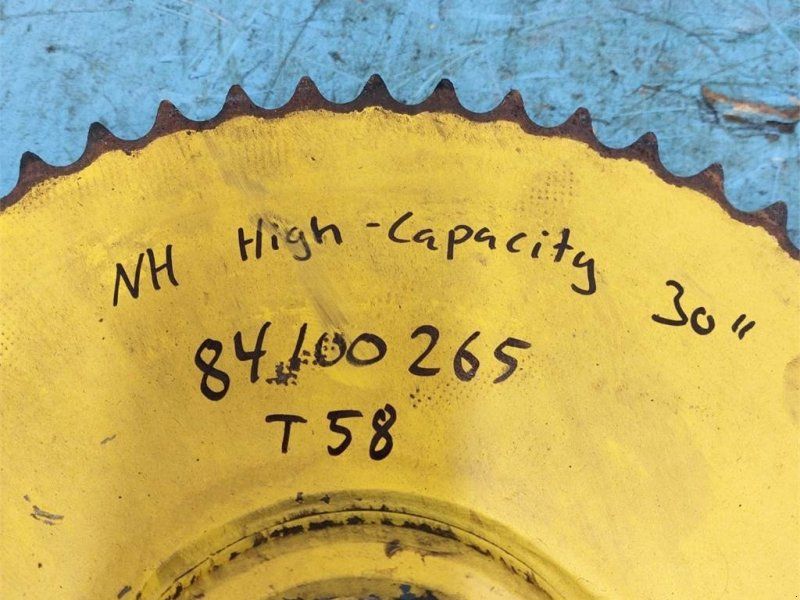 NH High-Capacity 30"
84100265
T58